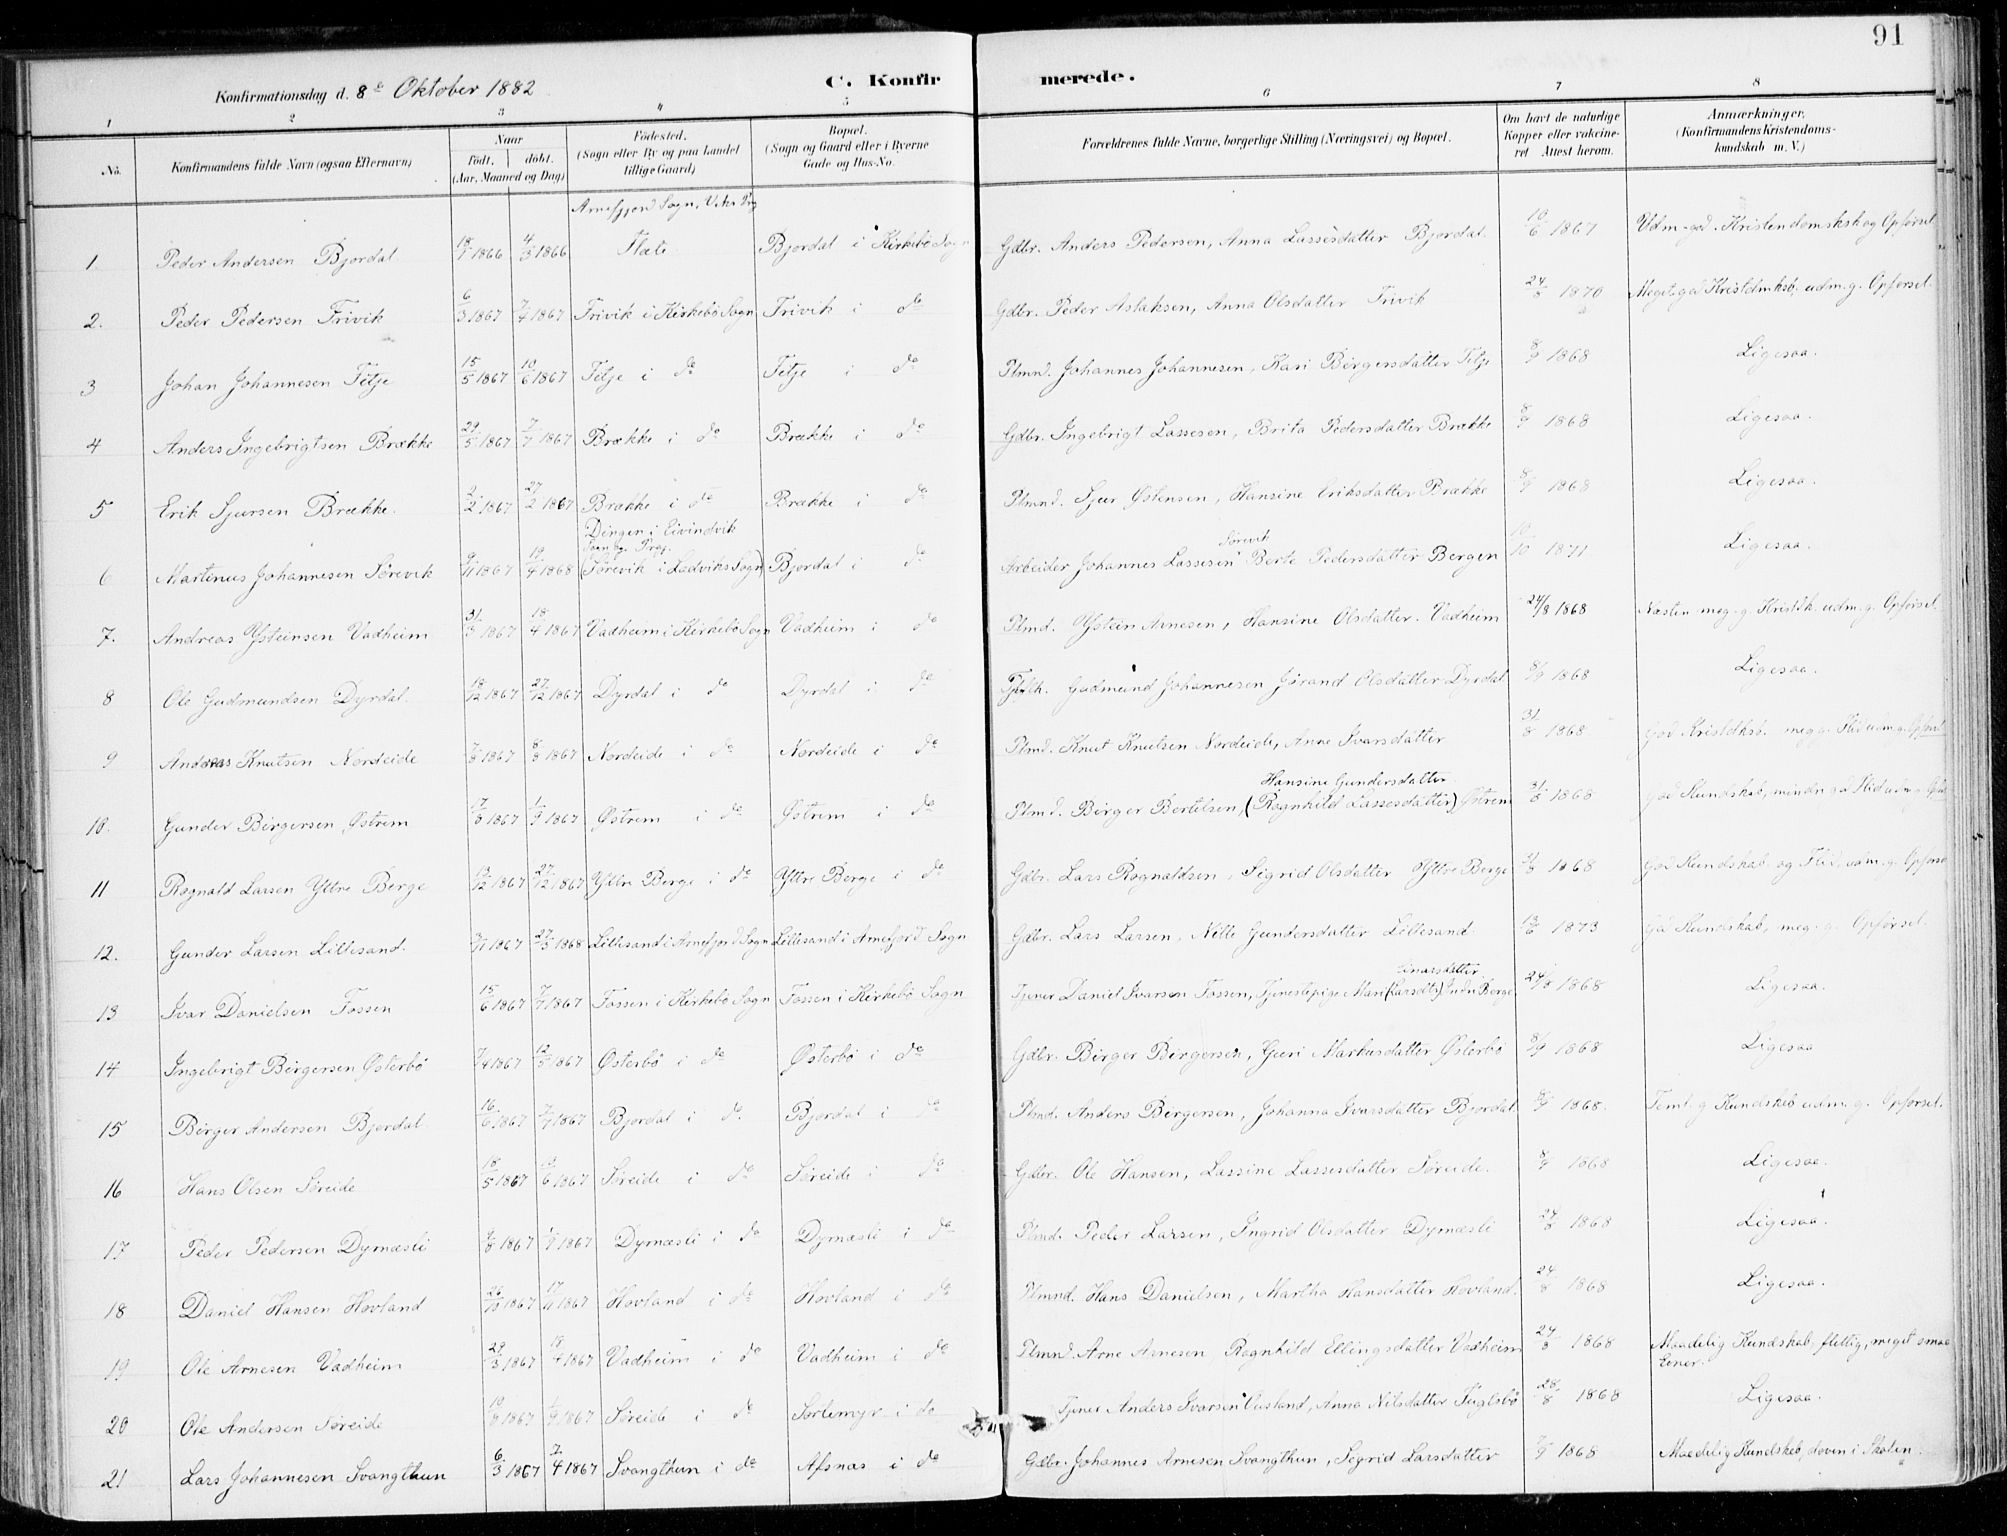 91
Konfirmationsdag d. 8de Oktober 1882
C. Konfir merede.
1 2 3 4 5 6 7 8
No. Konfirmandens fulde Navn (ogsaa Efternavn) Naar født, døbt. (Aar, Maaned og Dag) Fødested. (Sogn eller By og paa Landet tillige Gaard) Bopæl. (Sogn og Gaard eller i Byerne Gade og Hus-No. Forældrenes fulde Navne, borgerlige Stilling (Næringsvei) og Bopæl. Om havt de naturlige Kopper eller vakcineret Attest herom. Anmærkninger, (Konfirmandens Kristendomskundskab m. V.)
Arnefjord Sogn, Viks Prg
1. Peder Andersen Bjordal 18/1 1866 4/3 1866 Flate Bjordal i Kirkebø Sogn Gdbr. Anders Pedersen, Anna Lassesdatter Bjordal 10/6 1867 Udm. god Kristendomsksk og Opførsel
2. Peder Pedersen Trivik 6/3 1867 7/4 1867 Trivik i Kirkebø Sogn Trivik i do Gdbr. Peder Aslaksen, Anna Olsdatter Trivik 24/8 1870 Meget god Kristdmksb. udm. g. Opførsel.
3 Johan Johannesen Titje 15/5 1867 10/6 1867 Titje i do Titje i do Plmnd. Johannes Johannesen, Kari Børgersdatter Titje 8/9 1868 Ligesaa.
4 Anders Ingebrigtsen Brække 29/5 1867 7/7 1867 Brække i do Brække i do Gdbr. Ingebrigt Lassesen, Brita Pedersdatter Brække 8/9 1868 Ligesaa.
5 Erik Sjursen Brække. 2/2 1867 27/2 1867 Brække i do Brække i do Plmnd. Sjur Østensen, Hansine Eriksdatter Brække 8/9 1868 Ligesaa.
Dingen i Eivindvik
Sogn og Præg.
Sørevik
6 Martinus Johannesen Sørevik 9/11 1867 19/4 1868 (Sørevik i Ladviks Sogn) Bjordal i do Arbeider Johannes Lassesen Berte Pedersdatter Bergen 10/10 1871 Ligesaa.
7. Andreas Ysteinsen Vadheim 31/3 1867 18/4 1867 Vadheim i Kirkebø Sogn Vadheim i do Plmd. Ystein Arnesen, Hansine Olsdatter. Vadheim 24/8 1868 Næsten meg. g. Kristdk. udm. g. Opførsel.
8 Ole Gudmundsen Dyrdal. 18/12 1867 27/12 1867 Dyrdal i do Dyrdal i do Gudmund Johannesen Jørand Olsdatter Dyrdal 8/9 1868 Ligesaa.
9 Andreas Knutsen Nordeide 7/8 1867 8/9 1867 Nordeide i do Nordeide i do Plmd. Knut Knutsen Nordeide, Anne Ivarsdatter 31/8 1868 God Kristdksb. meg g. Flid udm. g. Opførsel
Hansine Gundersdatter
10. Gunder Børgersen Østrem 17/8 1867 1/9 1867 Østrem i do Østrem i do Plmd. Børger Bertelsen, (Ragnhild Lassesdatter) Østrem 31/8 1868 God Kundskab, mindre god Flid udm. g. Opf
11 Ragnald Larsen Yttre Berge 13/12 1867 27/12 1867 Yttre Berge i do Yttre Berge i do Gdbr. Lars Ragnaldsen, Sigrid Olsdatter Yttre Berge 31/8 1868 God Kundskab og Flid, udm. g. Opførse
12. Gunder Larsen Lillesand. 3/11 1867 27/5 1868 Lillesand i Arnefjord Sogn Lillesand i Arnefjord Sogn Gdbr. Lars Larsen, Nille Gundersdatter Lillesand 13/6 1873 God Kundskab, meg. g. Opførsel.
Einarsdatter
13 Ivar Danielsen Fossen 15/6 1867 7/7 1867 Fossen i Kirkebø Sogn Fossen i Kirkebø Sogn Tjener Daniel Ivarsen Fossen, Tjenestepige Mari (Larsdtr) Indre Berge 24/8 1868 Ligesaa.
14 Ingebrigt Børgersen Østerbø 7/4 1867 12/5 1867 Østerbø i do Østerbø i do Gdbr. Børger Børgersen, Guri Markusdatter Østerbø 8/9 1868 Ligesaa
15 Børger Andersen Bjordal. 16/6 1867 7/7 1867 Bjordal i do Bjordal i do Plmd. Anders Børgersen, Johanna Ivarsdatter Bjordal 8/9 1868. Teml. g Kundskab udm. g. Opførsel.
16 Hans Olsen Søreide 18/5 1867 10/6 1867 Søreide i do Søreide i do Gdbr. Ole Hansen, Lassine Lassesdatter Søreide. 8/9 1868 Ligesaa.
17 Peder Pedersen Dymæsli 9/8 1867 1/9 1867 Dymæsli i do Dymæsli i do Plmd. Peder Larsen, Ingrid Olsdatter Dymæsli 24/8 1868 Ligesaa.
18 Daniel Hansen Hovland 26/10 1867 17/11 1867 Hovland i do Hovland i do Plmnd. Hans Danielsen, Martha Hansdatter Hovland. 24/8 1868 Ligesaa.
19 Ole Arnesen Vadheim 29/3 1867 18/4 1867 Vadheim i do Vadheim i do Plmnd. Arne Arnesen Ragnhild Ellingsdatter Vadheim 24/8 1868 Maadelig Kundskab, flittig, meget smaa Evner.
20 Ole Andersen Søreide 1867 1/9 1867 Søreide i do Sørlemyr i do Tjener Anders Ivarsen Anna Nilsdatter Fuglsbø 28/8 1868 Ligesaa.
21 Lars Johannesen Svangthun 6/3 1867 7/4 1867 Svangthun i do Afsnæs i do Gdbr. Johannes Arnesen Svangthun, Segrid Larsdatter 7/9 1868 Maadelig Kundskab, doven i Skolen.